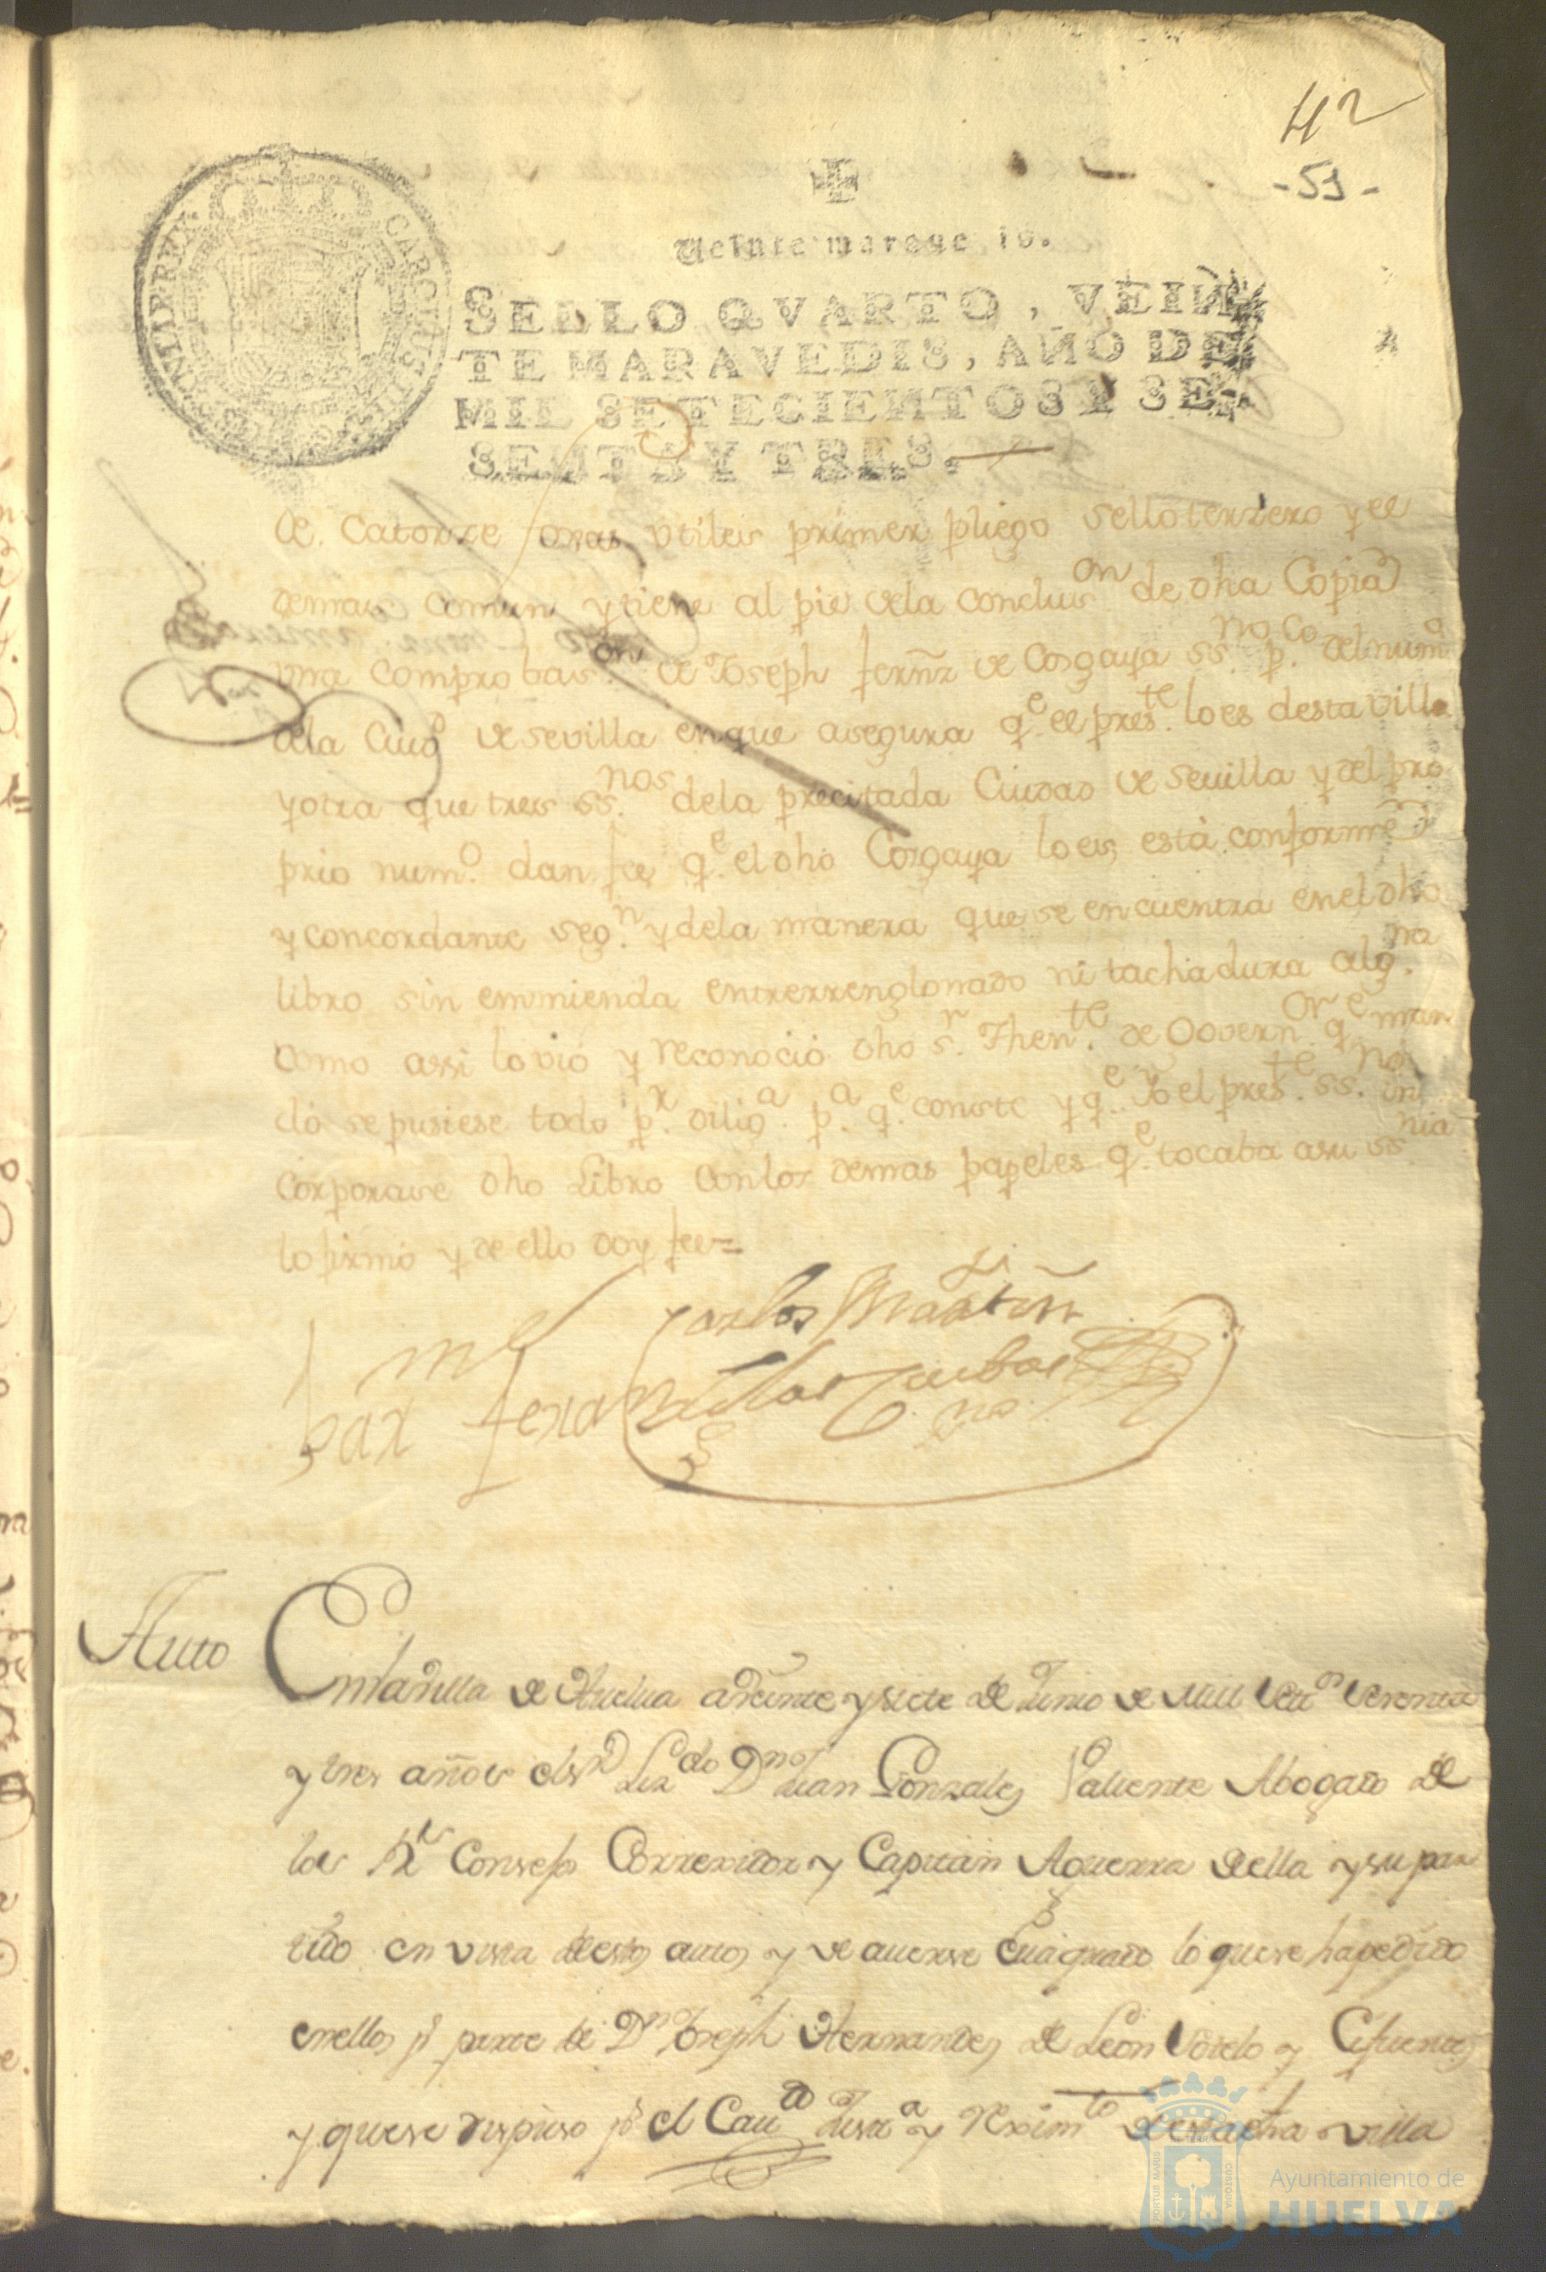 42
- 51 -
Veinte maraue is.
SELLO QVARTO, VEIN
TE MARAVEDIS, AÑO DE
MIL SETECIENTOS Y SE
SENTA Y TRES.
CAROLUS III
de Catorze oxas vtiles primer pliego sello terzero y el
demas comun y tiene al pie dela conclus.on de dha Copia
vna comprobas.on de Joseph fernz de Cosgaya ss.no p.co del num.o
dela Ciud de sevilla en que asegura q.e el pres.te lo es desta villa
y otra que tres ss.nos dela precitada Ciudad de Seuilla y del pro
prio num.o dan fee q.e el dho Cosgaya lo es, está conforme
y concordante seg.n y dela manera que se encuentra en el dho
libro sin enmienda entrerrenglonado ni tachadura alg.na
como assi lo vió y reconoció dho s.r Then.te de Govern.or q.e man
dó se pusiese todo p.r dilig.a p.a q.e conste y q.e Yo el pres.te ss.no in
corporase dho Libro con los demas papeles q.e tocaba a su ss.nia
lo firmó y de ello doy fee=
Carlos Martin
Auto
En la villa de Huelua a veinte y siete de Junio de Mill Setts Sesenta
y tres años el s.r Lizdo Dn Juan Gonzales Valiente Abogado de
los Rs Consejos Correxidor y Capitan Aguerra della y su par
tido en vista de estos autos y de auerse Euaquado lo que se ha pedido
en ellos pr parte de Dn Joseph Hernandes de Leon Vdelo y Cifuentes
y que se dispuso pr el Cauдо Justa y Reximto de esta dha villa
PORTUS MARIS
CUSTODIA
Ayuntamiento de
HUELVA